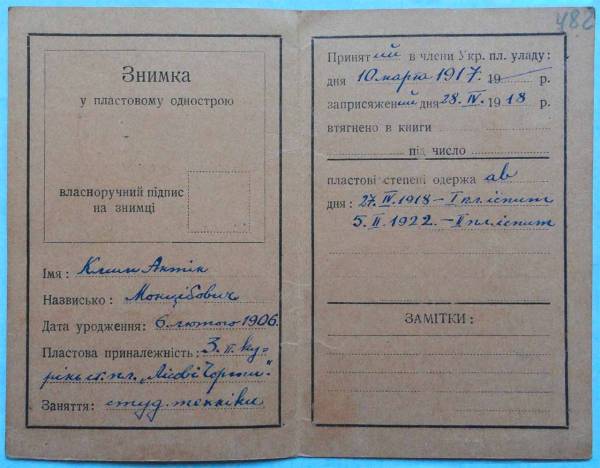 Знимка
у пластовому однострою
власноручний підпис
на знимці
Імя : Клим Антін
Назвисько : Монцібович
Дата уродження : 6. лютого 1906.
Пластова приналежність : 3. п. ку-
рінь ст. пл. „Лісові Чорти".
Заняття : студ. техніки
482
Принятий в члени Укр. пл. уладу :
дня 10 марта 1917. 19 р.
заприсяжений дня 28. IV. 1918 р.
втягнено в книги
під число
пластові степені одержав
дня : 27. IV. 1918 – I пл. іспит
5. II. 1922. – II пл. іспит
ЗАМІТКИ :